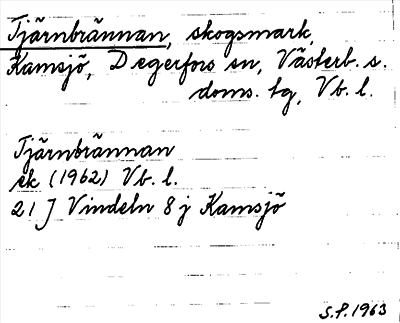 Tjärnbrännan, skogsmark,
Kamsjö, Degerfors sn, Västerb. s.
doms. tg, Vb. l.
Tjärnbrännan
ek (1962) Vb. l.
21 J Vindeln 8 j Kamsjö
S.P. 1963